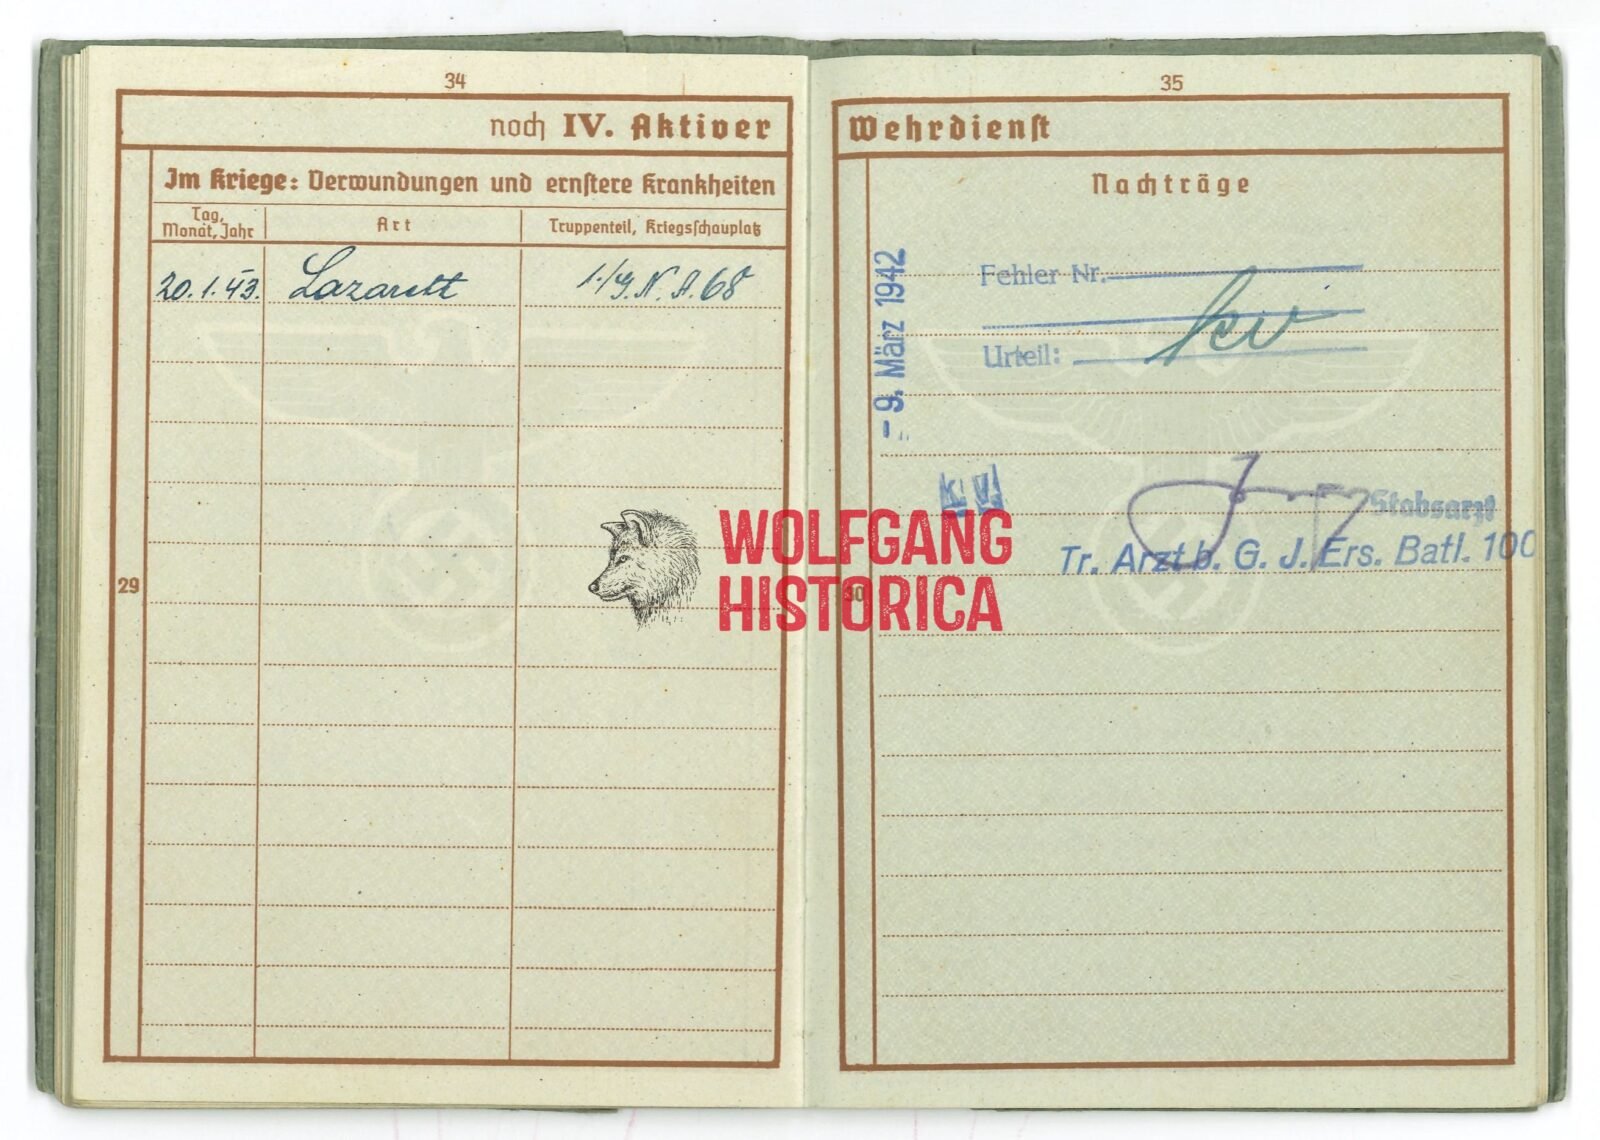 34
noch IV. Aktiver
Im Kriege: Verwundungen und ernstere Krankheiten
Tag, Monat, Jahr
Art
Truppenteil, Kriegsschauplatz
20.1.43.
Lazarett
1./G.N.A.68
29
35
Wehrdienst
Nachträge
- 9. März 1942
Fehler Nr.
Urteil:
kv
k. v.
Stabsarzt
Tr. Arzt b. G. J. Ers. Batl. 100
30
WOLFGANG
HISTORICA